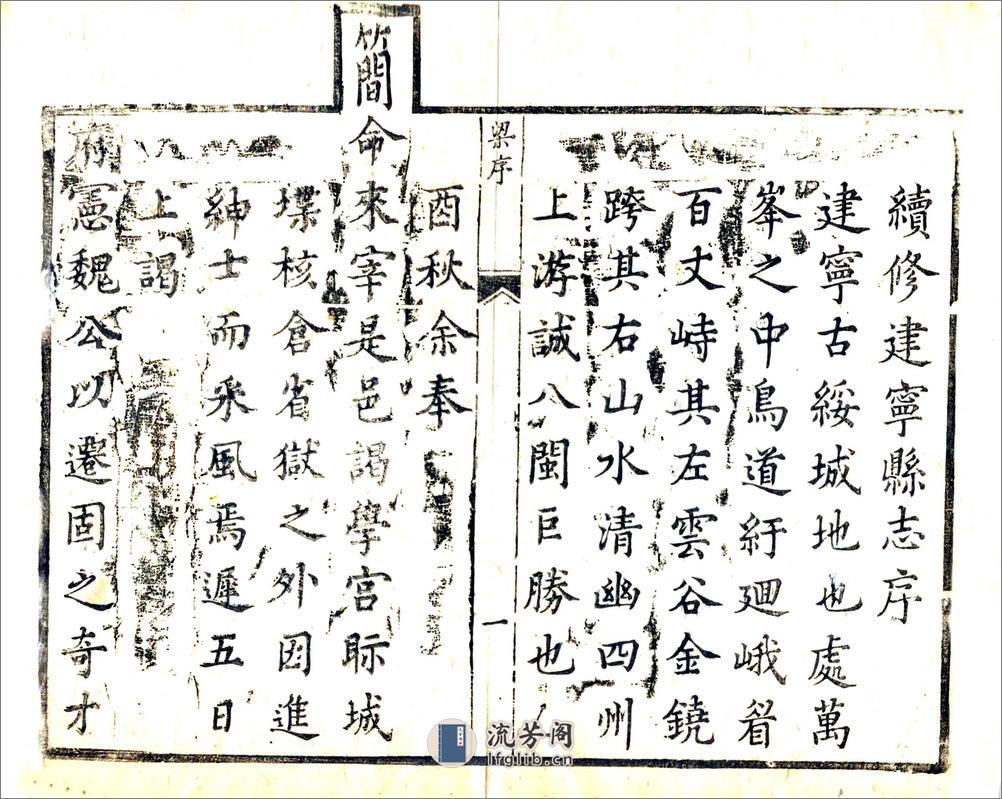 續修建寧縣志序
建寧古綏城地也處萬
峯之中鳥道紆廻峨眉
百丈峙其左雲谷金鐃
跨其右山水清幽四州
上游誠八閩巨勝也
梁序
一
酉秋余奉
簡命來宰是邑謁學宮眎城
堞核倉省獄之外因進
紳士而采風焉遲五日
上謁
府憲魏公以遷固之奇才
流芳阁
lfglib.cn